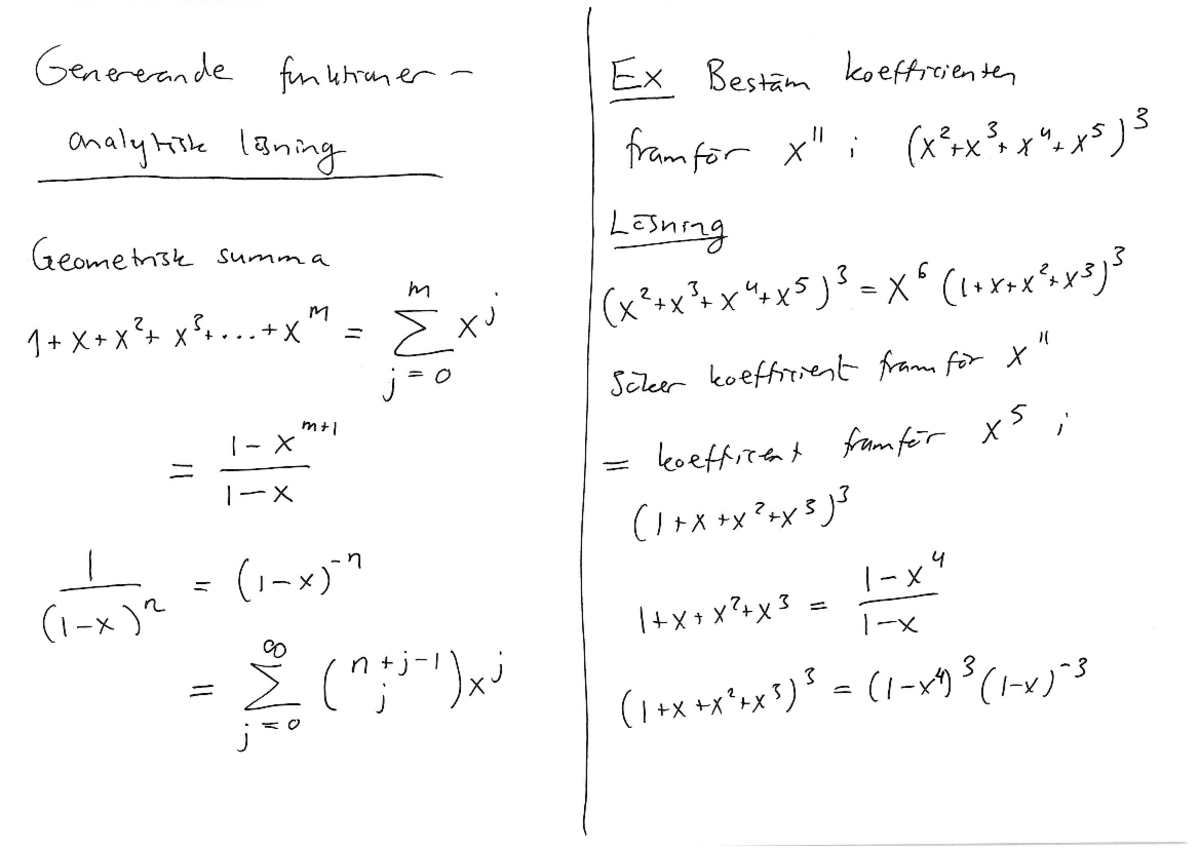 Genererande funktioner –
analytisk lösning
Geometrisk summa
1 + x + x² + x³ + ... + x^m = ∑_{j=0}^{m} x^j
= (1 - x^{m+1}) / (1 - x)
1 / (1-x)^n = (1-x)^{-n}
= ∑_{j=0}^{∞} (n+j-1 över j) x^j
Ex Bestäm koefficienten
framför x^11 i (x² + x³ + x⁴ + x⁵)³
Lösning
(x² + x³ + x⁴ + x⁵)³ = x⁶ (1 + x + x² + x³)³
Söker koefficient framför x^11
= koefficient framför x⁵ i
(1 + x + x² + x³)³
1 + x + x² + x³ = (1 - x⁴) / (1 - x)
(1 + x + x² + x³)³ = (1 - x⁴)³ (1-x)^{-3}